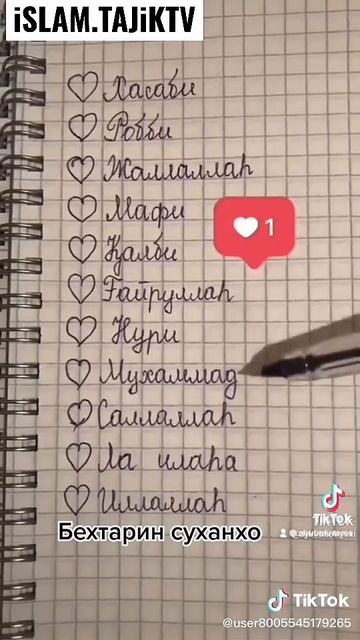 iSLAM.TAJiKTV
Хасаби
Робби
Жаллаллаһ
Мафи
1
Қалби
Ғайруллаһ
Нури
Мухаммад
Саллаллаһ
Ла илаһа
Иллаллаһ
Бехтарин суханхо
TikTok
TikTok
@user8005545179265